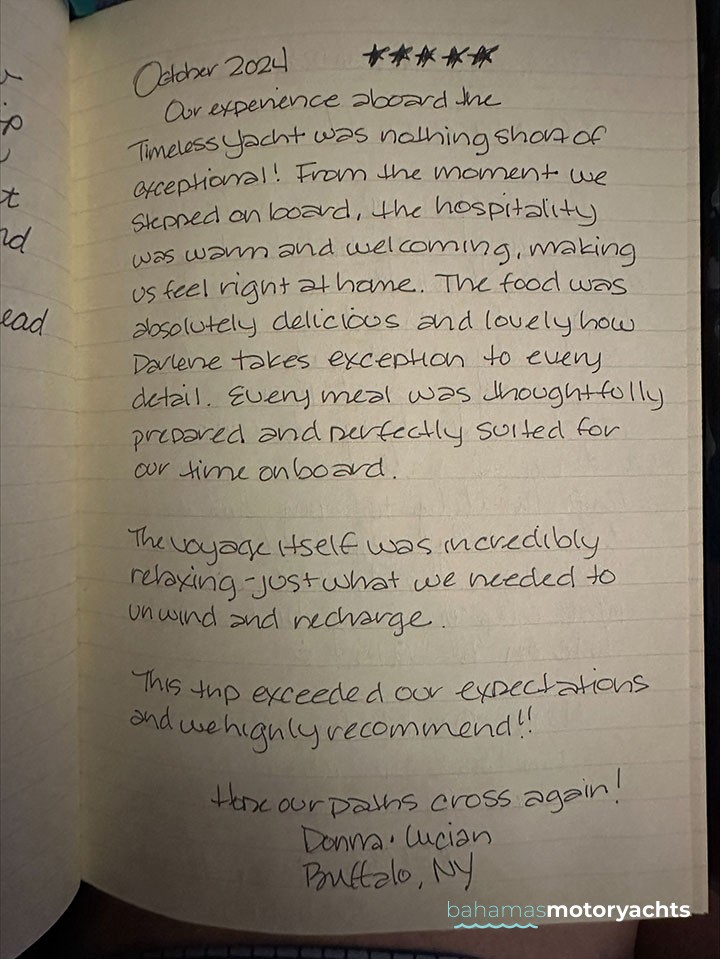 October 2024 ★★★★★
Our experience aboard the
Timeless Yacht was nothing short of
exceptional! From the moment we
stepped on board, the hospitality
was warm and welcoming, making
us feel right at home. The food was
absolutely delicious and lovely how
Darlene takes exception to every
detail. Every meal was thoughtfully
prepared and perfectly suited for
our time onboard.
The voyage itself was incredibly
relaxing - just what we needed to
unwind and recharge.
This trip exceeded our expectations
and we highly recommend!!
Hope our paths cross again!
Donna · Lucian
Buffalo, NY
nd
ead
bahamasmotoryachts